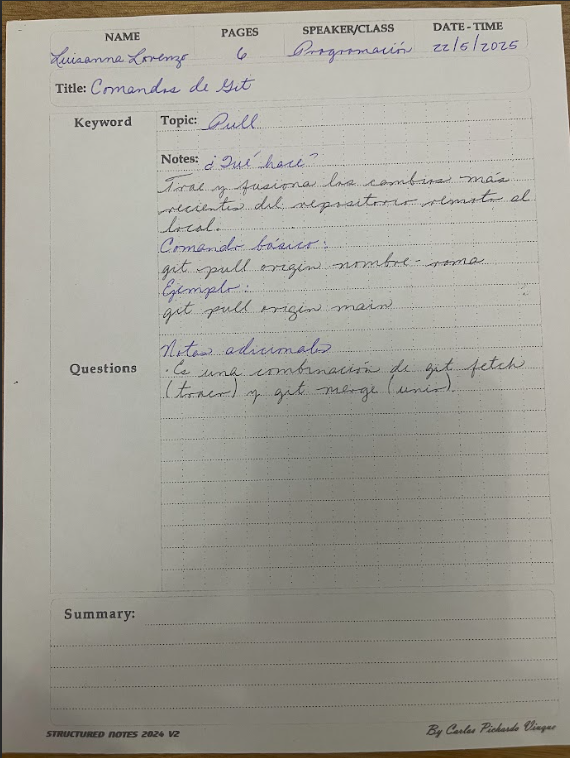 NAME PAGES SPEAKER/CLASS DATE - TIME
Luisanna Lorenzo 6 Programación 22/5/2025
Title: Comandos de Git
Keyword
Topic: Pull
Notes: ¿Qué hace?
Trae y fusiona los cambios más
recientes del repositorio remoto al
local.
Comando básico:
git pull origin nombre-rama
Ejemplo:
git pull origin main
Notas adicionales
Questions
· Es una combinación de git fetch
(traer) y git merge (unir).
Summary:
STRUCTURED NOTES 2024 V2
By Carlos Pichardo Vinque